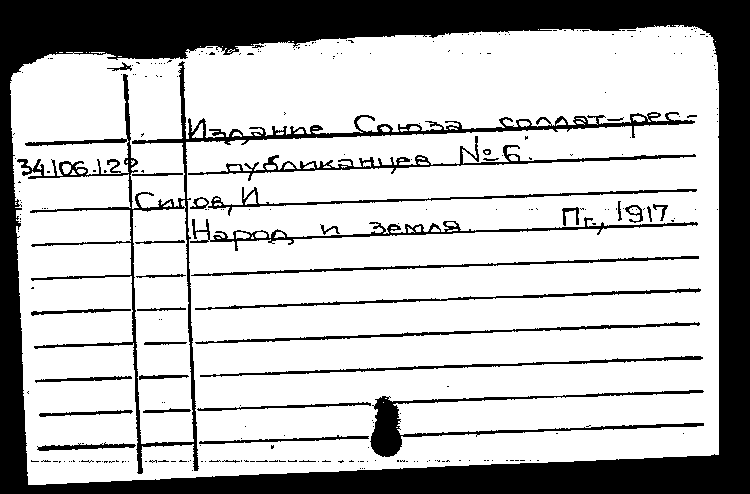 Издание Союза солдат-рес-
34.106.1.22. публиканцев №6.
Сигов, И.
Народ и земля. Пг., 1917.